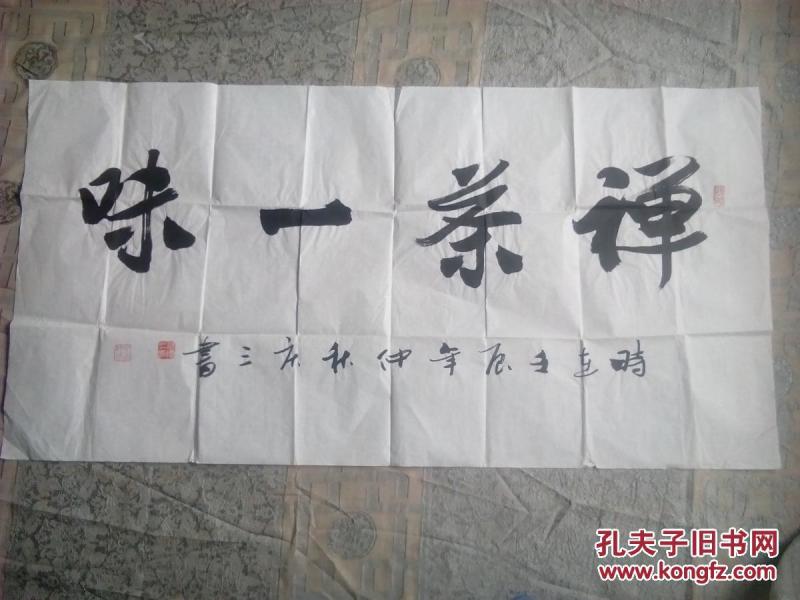 禅茶一味
時在壬辰年仲秋庆三書
孔夫子旧书网
www.kongfz.com